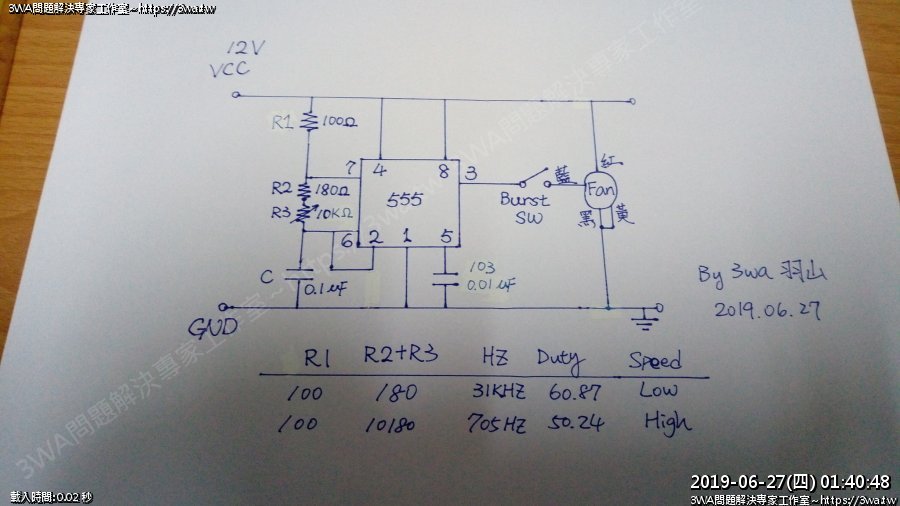 3WA問題解決專家工作室~https://3wa.tw
12V
VCC
R1 100Ω
7 4 8 3
藍 紅
R2 180Ω
555
Fan
R3 10KΩ
Burst
SW
黑 黃
6 2 1 5
C 0.1uF
103
0.01uF
By 3wa 羽山
2019.06.27
GND
R1 R2+R3 HZ Duty Speed
100 180 31KHZ 60.87 Low
100 10180 705HZ 50.24 High
3WA問題解決專家工作室~https://3wa.tw
2019-06-27(四) 01:40:48
載入時間:0.02 秒
3WA問題解決專家工作室~https://3wa.tw